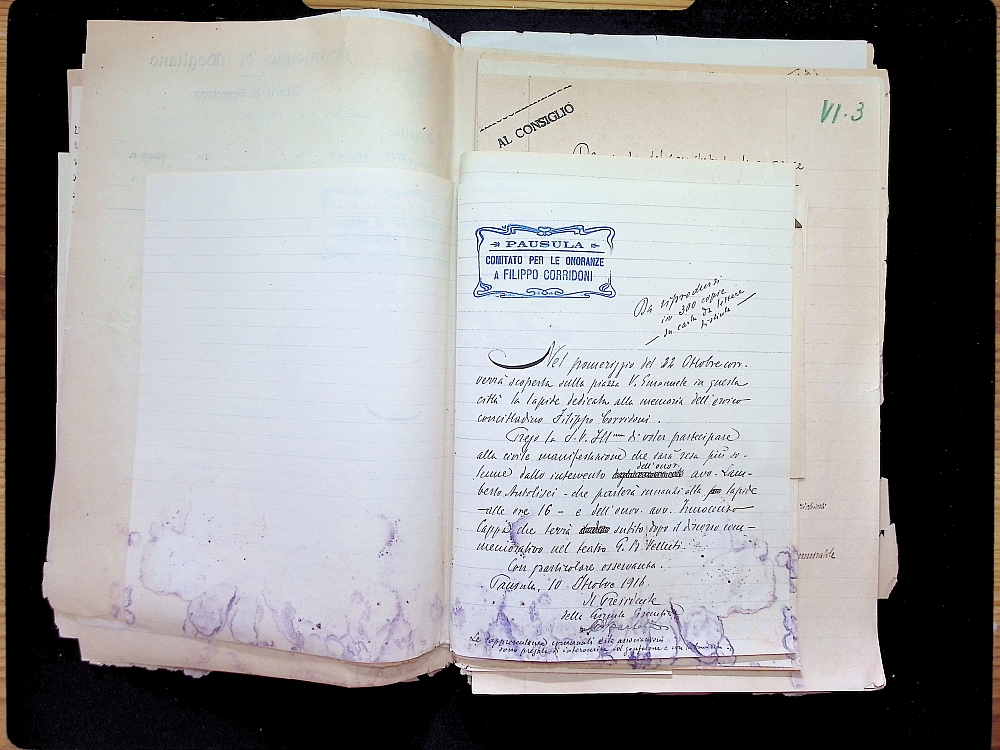 Municipio di Mogliano
VI·3
AL CONSIGLIO
PAUSULA
COMITATO PER LE ONORANZE
A FILIPPO CORRIDONI
Da riprodursi
in 300 copie
su carta da lettere
Nel pomeriggio del 22 Ottobre corr.
verrà scoperta sulla piazza V. Emanuele in questa
città la lapide dedicata alla memoria dell'eroico
concittadino Filippo Corridoni.
Prego la S.V. Ill.ma di voler partecipare
alla civile manifestazione che sarà resa più so-
lenne dallo intervento dell'onor. avv. Lam-
berto Antolisei - che parlerà innanzi alla lapide
alle ore 16 - e dell'onor. avv. Innocenzo
Cappa che terrà subito dopo il discorso com-
memorativo nel teatro G. B. Velluti.
Con particolare osservanza.
Pausula, 10 Ottobre 1916.
Il Presidente
della Giunta Esecutiva
Le rappresentanze comunali e le associazioni
sono pregate d'intervenire col gonfalone e con la bandiera.